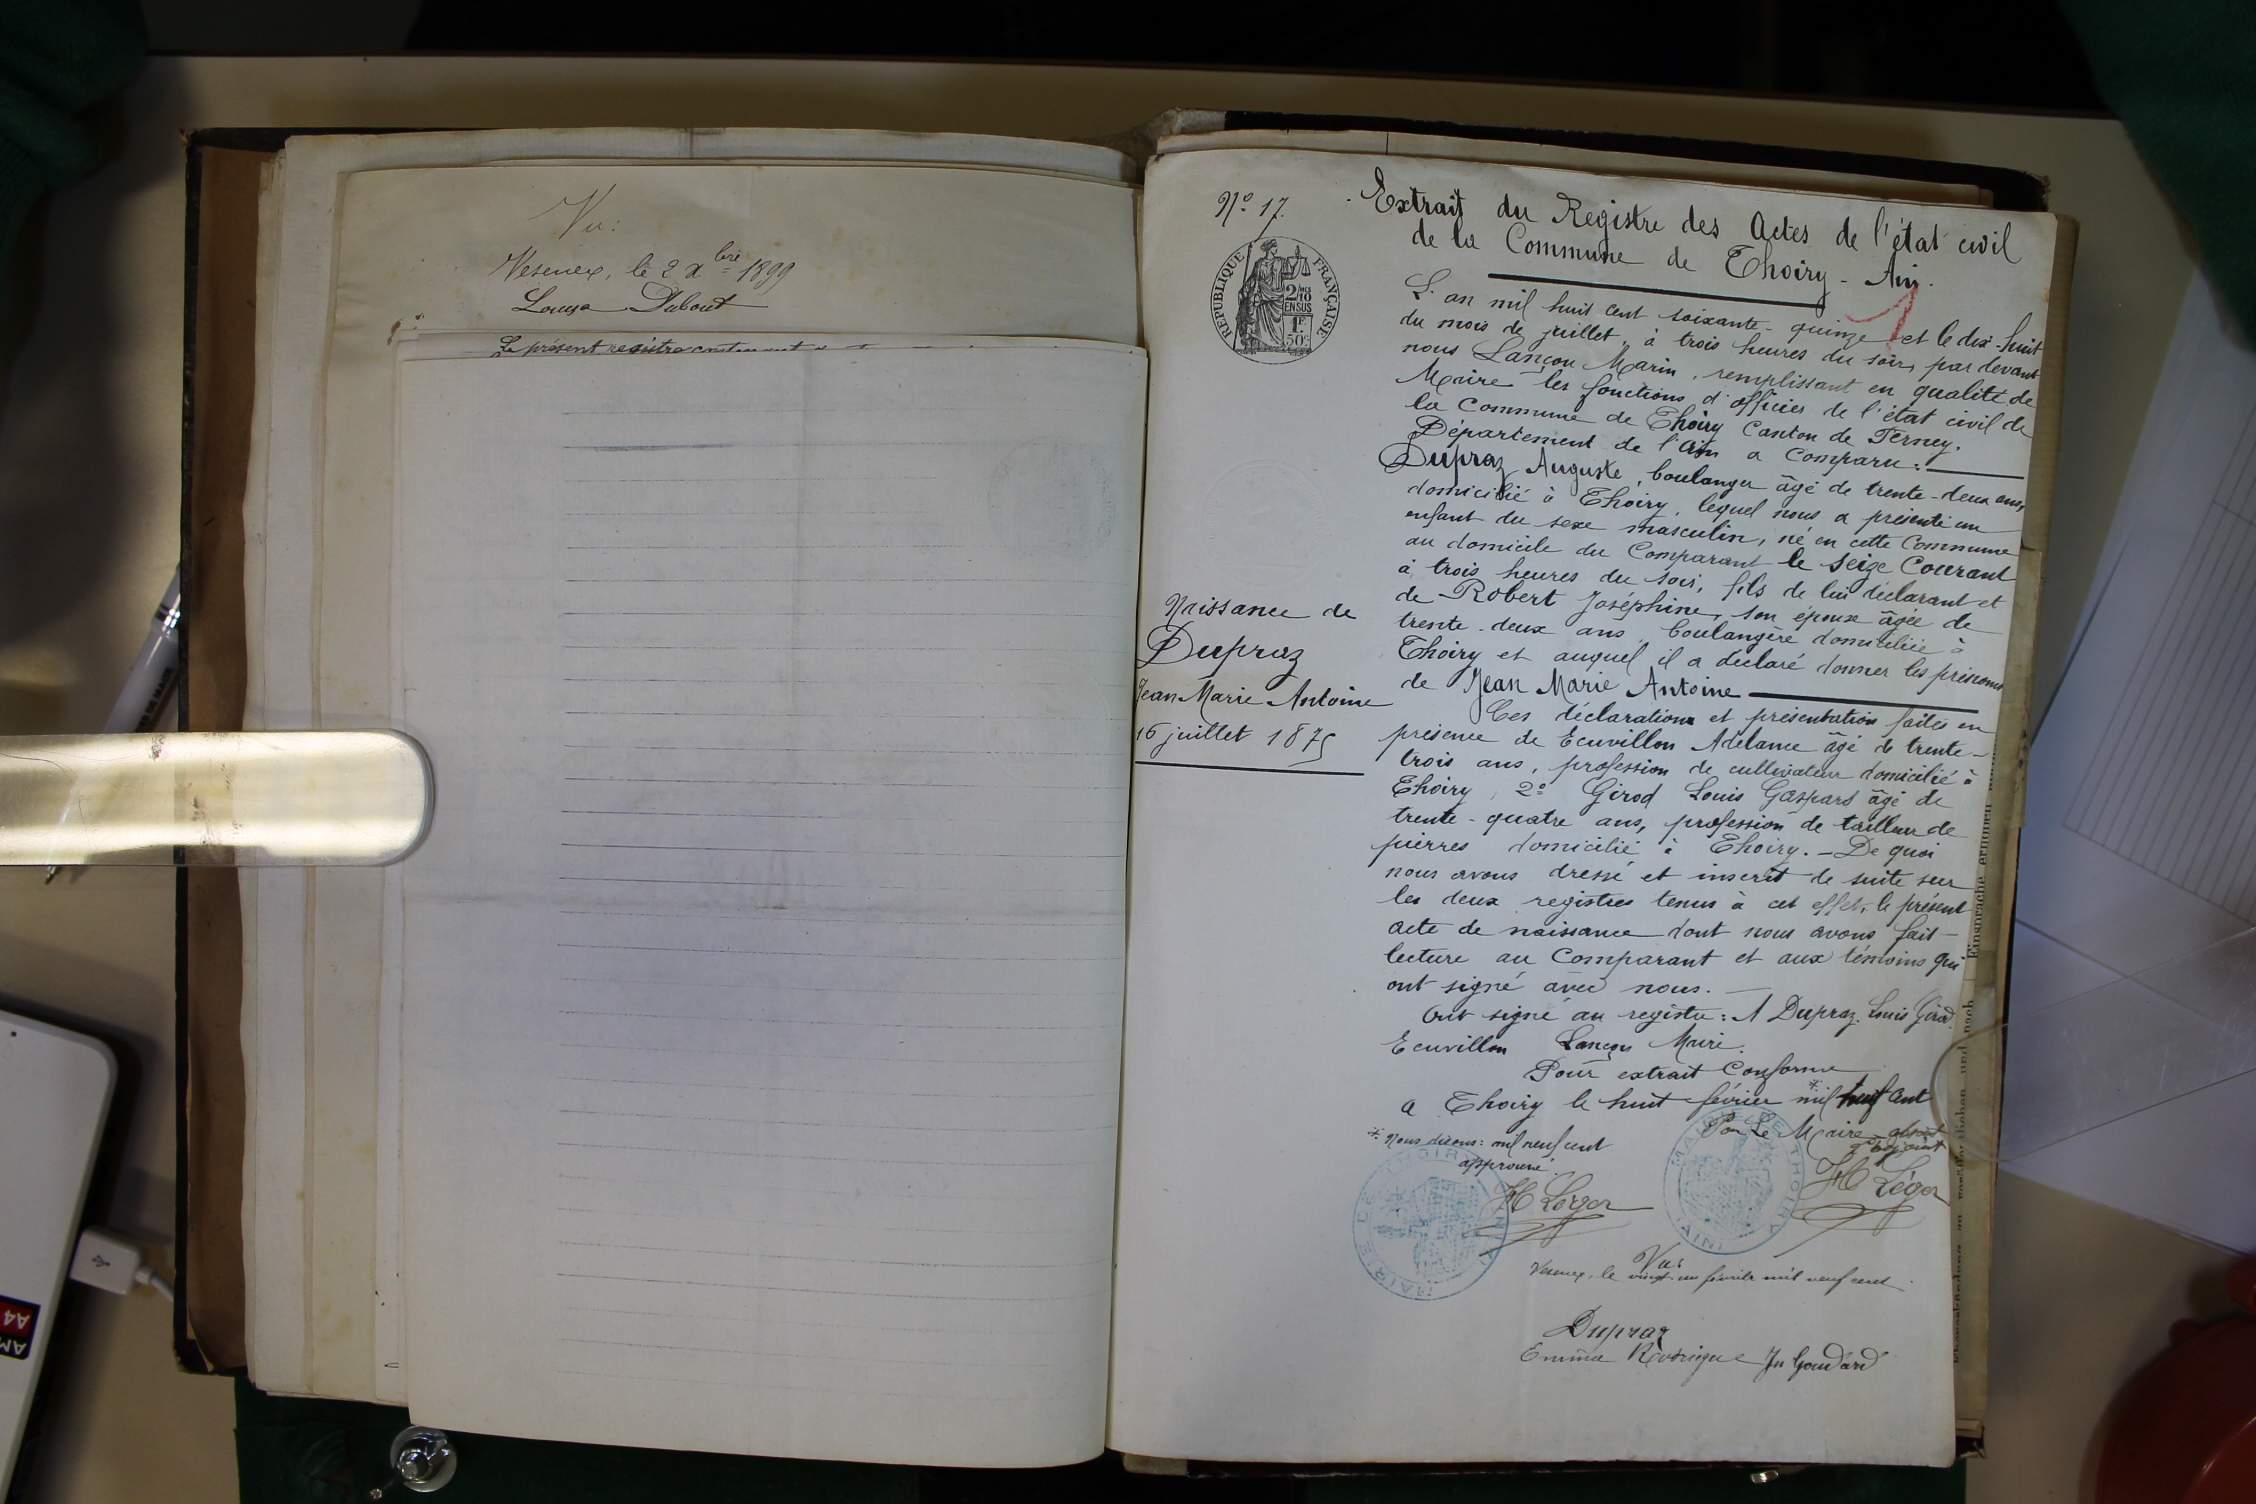 Vu:
Vesenex, le 2 Xbre 1899
Louya Dubout
Le présent registre contenant
Nº 17.
Extrait du Registre des Actes de l'état civil
de la Commune de Thoiry - Ain.
RÉPUBLIQUE FRANÇAISE
2/10 EN SUS
1F 50c
L'an mil huit cent soixante-quinze et le dix-huit
du mois de juillet, à trois heures du soir, par devant
nous Lançon Marin, remplissant en qualité de
Maire les fonctions d'officier de l'état civil de
la Commune de Thoiry Canton de Ferney.
Département de l'Ain a Comparu:
Dupraz Auguste, boulanger âgé de trente-deux ans,
domicilié à Thoiry, lequel nous a présenté un
enfant du sexe masculin, né en cette Commune
au domicile du Comparant le seize Courant
à trois heures du soir, fils de lui déclarant et
de Robert Joséphine, son épouse âgée de
trente-deux ans, boulangère domiciliée à
Thoiry et auquel il a déclaré donner les prénoms
de Jean Marie Antoine
Naissance de
Dupraz
Jean Marie Antoine
16 juillet 1875
Ces déclarations et présentation faites en
présence de Ecuvillon Adelame âgé de trente-
trois ans, profession de cultivateur domicilié à
Thoiry, 2º Girod Louis Gaspard âgé de
trente-quatre ans, profession de tailleur de
pierres domicilié à Thoiry. - De quoi
nous avons dressé et inscrit de suite sur
les deux registres tenus à cet effet, le présent
acte de naissance dont nous avons fait
lecture au Comparant et aux témoins qui
ont signé avec nous.
Ont signé au registre: A Dupraz. Louis Girod.
Ecuvillon Lançon Maire.
Pour extrait Conforme
A Thoiry le huit février mil huit cent
* Nous disons: mil neuf cent
approuvé.
Pour Le Maire absent
l'adjoint
H Léger
H Léger
MAIRIE DE THOIRY (AIN)
MAIRIE DE THOIRY (AIN)
Vu:
Vesenex, le vingt-un février mil neuf cent.
Dupraz
Emma Rodrigue Jn Goudard
Einsprache erheben
nach
A4